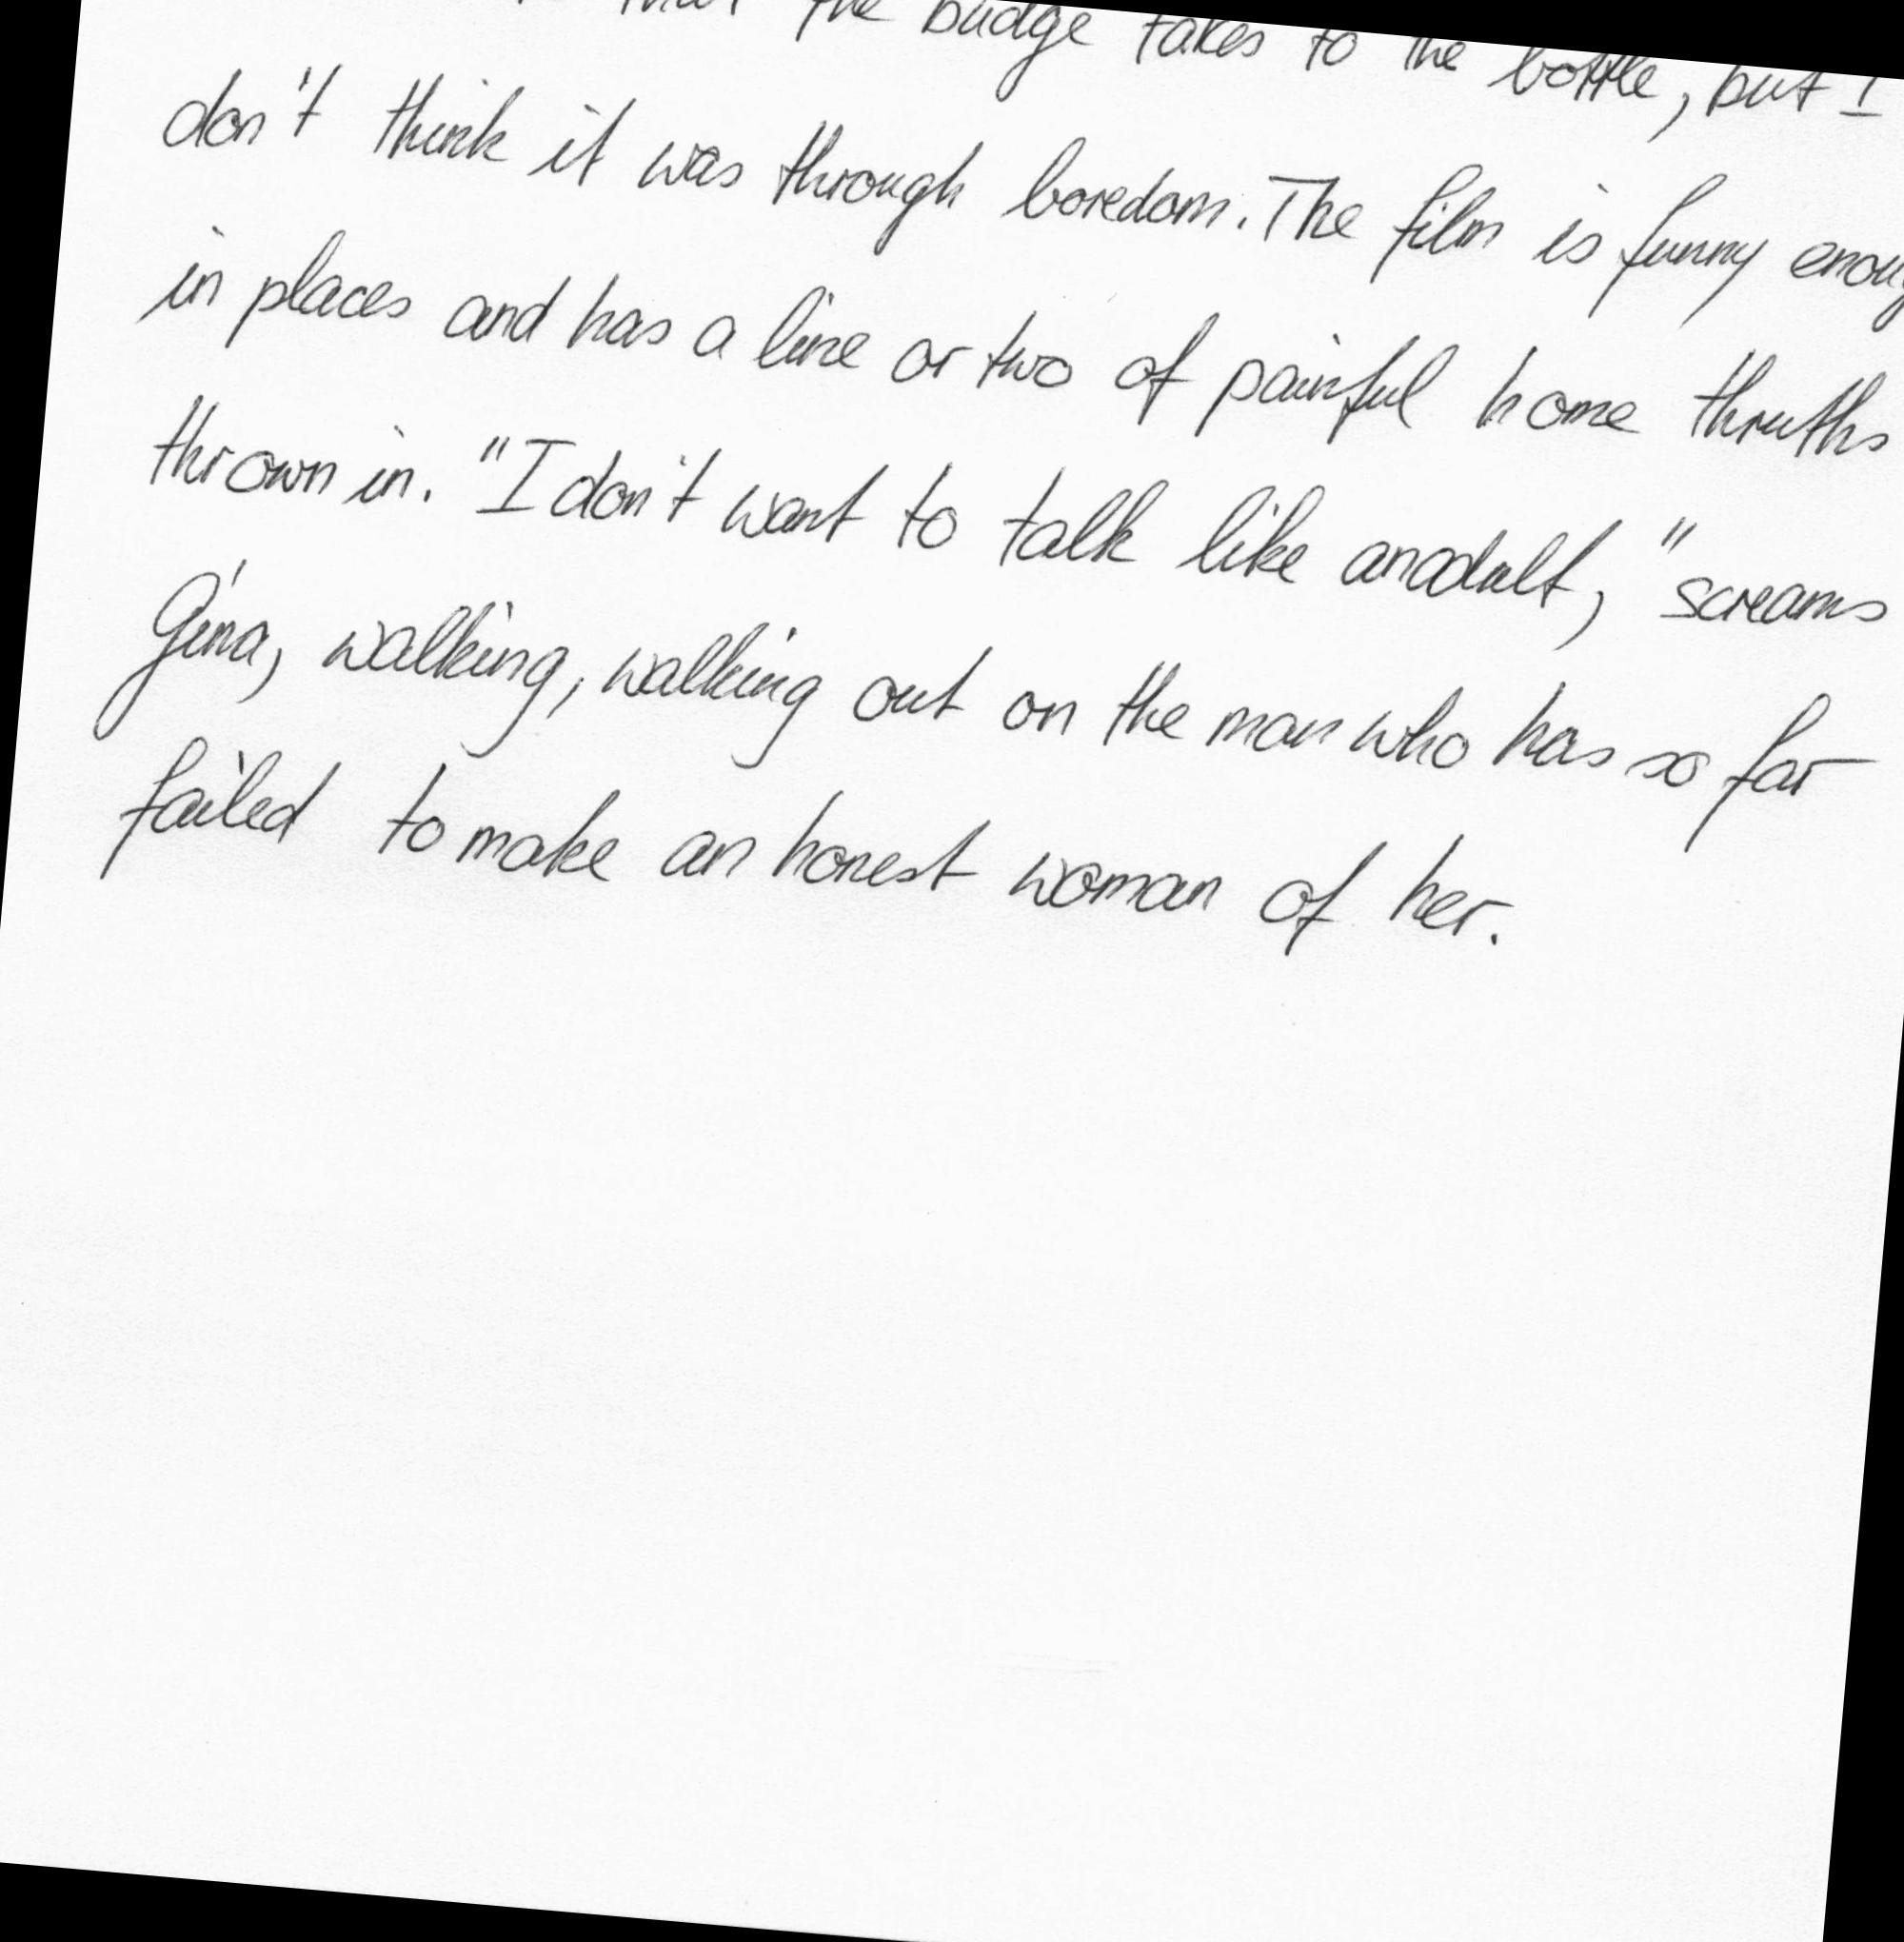 the budge takes to the bottle, but I
don't think it was through boredom. The film is funny
in places and has a line or two of painful home thruths
thrown in. "I don't want to talk like an adult," screams
Gina, walking, walking out on the man who has so far
failed to make an honest woman of her.